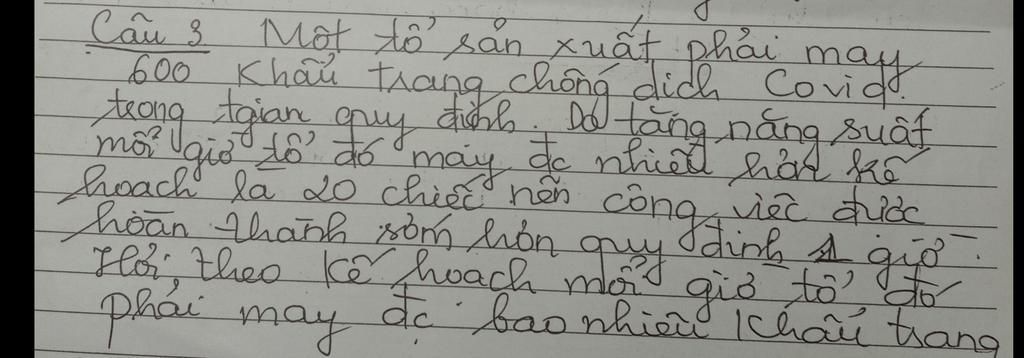 Câu 3 Một tổ sản xuất phải may
600 khẩu trang chống dịch Covid.
trong tgian quy định. Do tăng năng suất
mỗi giờ tổ đó may đc nhiều hơn kế
hoạch là 20 chiếc nên công việc được
hoàn thành sớm hơn quy định 1 giờ.
Hỏi theo kế hoạch mỗi giờ tổ đó
phải may đc bao nhiêu khẩu trang